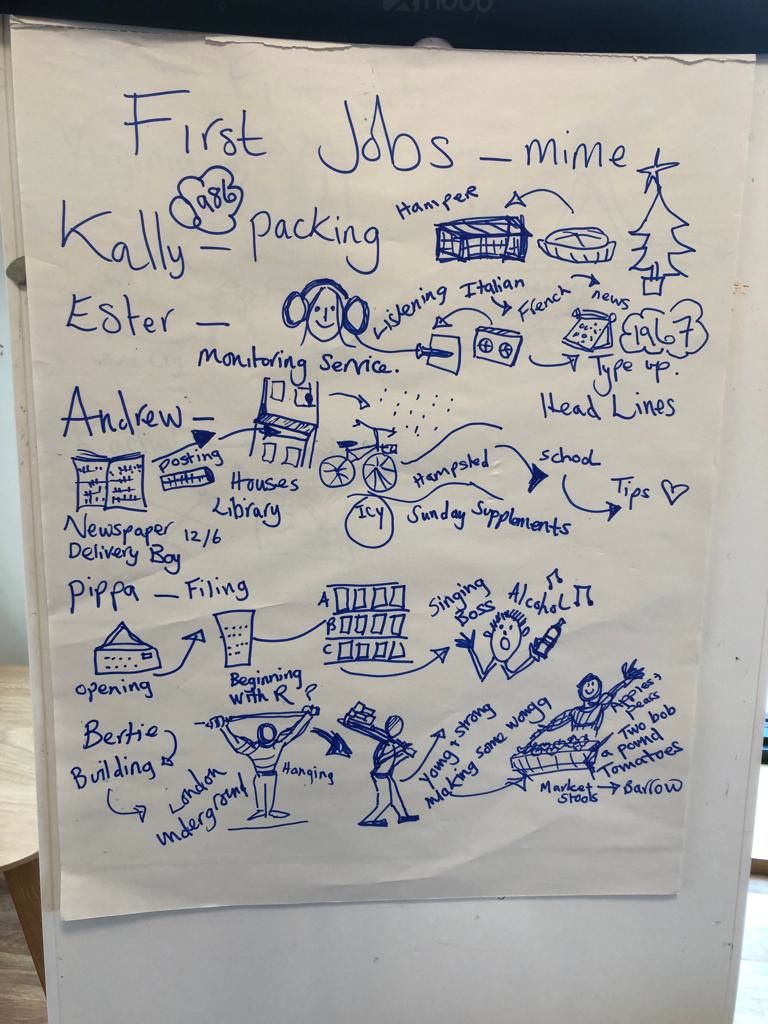 First Jobs - mime
1986
Kally - Packing
Hamper
Ester -
Listening
Italian
French
news
1967
Monitoring Service.
Type up.
Head Lines
Andrew -
posting
Houses
Library
Hampsted
school
Tips ♡
ICY
Sunday Supplements
Newspaper 12/6
Delivery Boy
Pippa - Filing
A
B
C
Singing
Boss
Alcohol
opening
Beginning
with R ?
Bertie
Building
London
Underground
Hanging
Young + strong
Making some wonga
Apples +
Pears
Two bob
a pound
Tomatoes
Market → Barrow
Stools